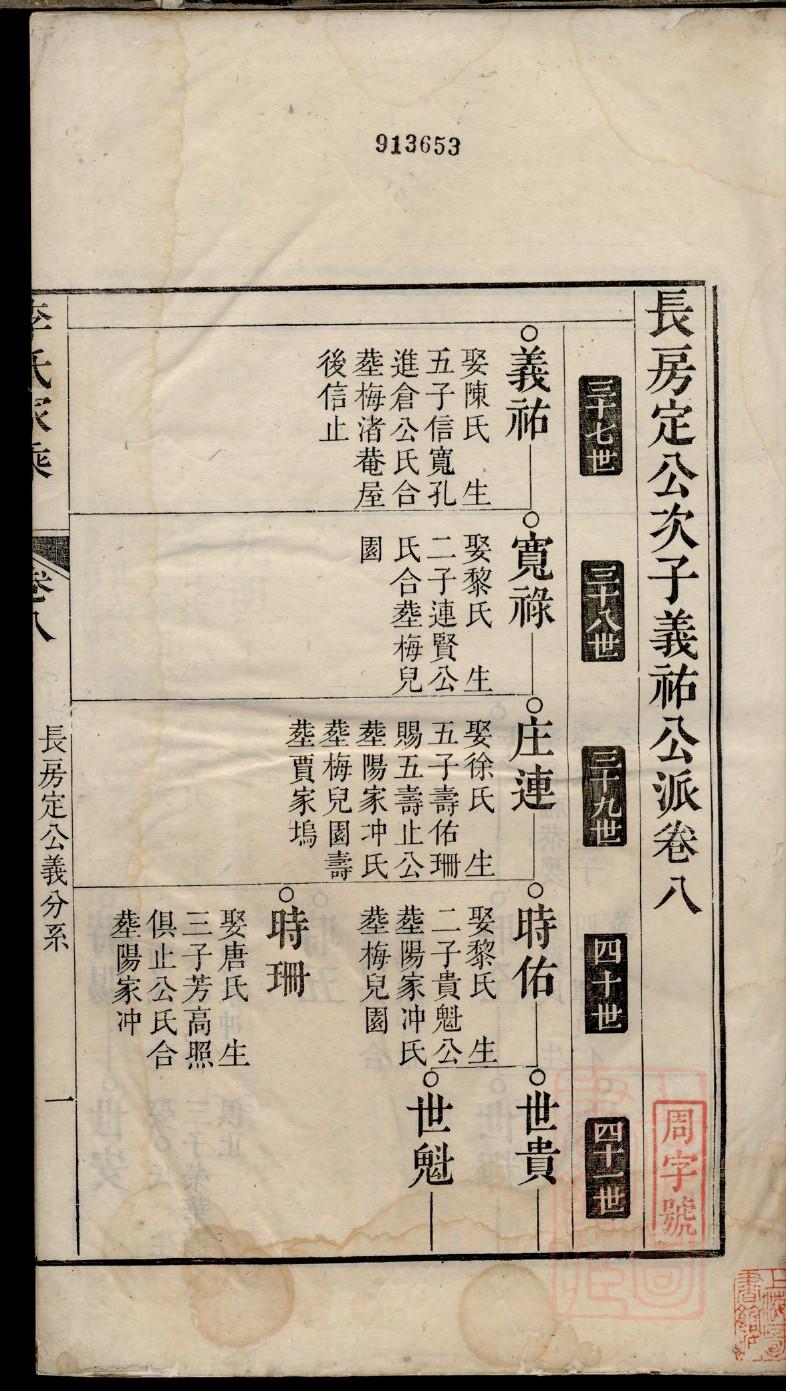 913653
長房定公次子義祐公派卷八
周字號
三十七世
三十八世
三十九世
四十世
四十一世
義祐
娶陳氏 生
五子信寬孔
進倉公氏合
塟梅渚菴屋
後信止
寬祿
娶黎氏 生
二子連賢公
氏合塟梅兒
園
庄連
娶徐氏 生
五子壽佑珊
賜五壽止公
塟陽家冲氏
塟梅兒園壽
塟賈家塢
時佑
娶黎氏 生
二子貴魁公
塟陽家冲氏
塟梅兒園
時珊
娶唐氏 生
三子芳高照
俱止公氏合
塟陽家冲
世貴
世魁
李氏家乘
卷八
長房定公義分系
一